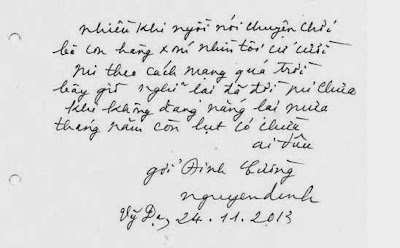 nhiều khi ngồi nói chuyện chơi
bà con hàng xóm nhìn tôi cứ cười
mi theo cách mạng quá trời
bây giờ nghĩ lại đã đời mi chưa
khi không đang nắng lại mưa
tháng năm còn lụt có chừa
ai đâu
gởi Đinh Cường
nguyendinh
Vỹ Dạ, 24.11.2013